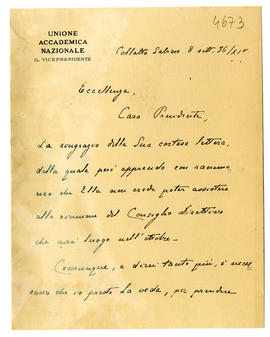 4673
UNIONE
ACCADEMICA
NAZIONALE
IL VICEPRESIDENTE
Collalto Sabino 8 sett. 36/XIV
Eccellenza,
Caro Presidente,
La ringrazio della Sua cortese lettera,
dalla quale però apprendo con ramma
rico che Ella non crede poter assistere
alla riunione del Consiglio Direttivo
che avrà luogo nell'ottobre.
Comunque, a dirsi tanto più, è neces
sario che io presto La veda, per prendere